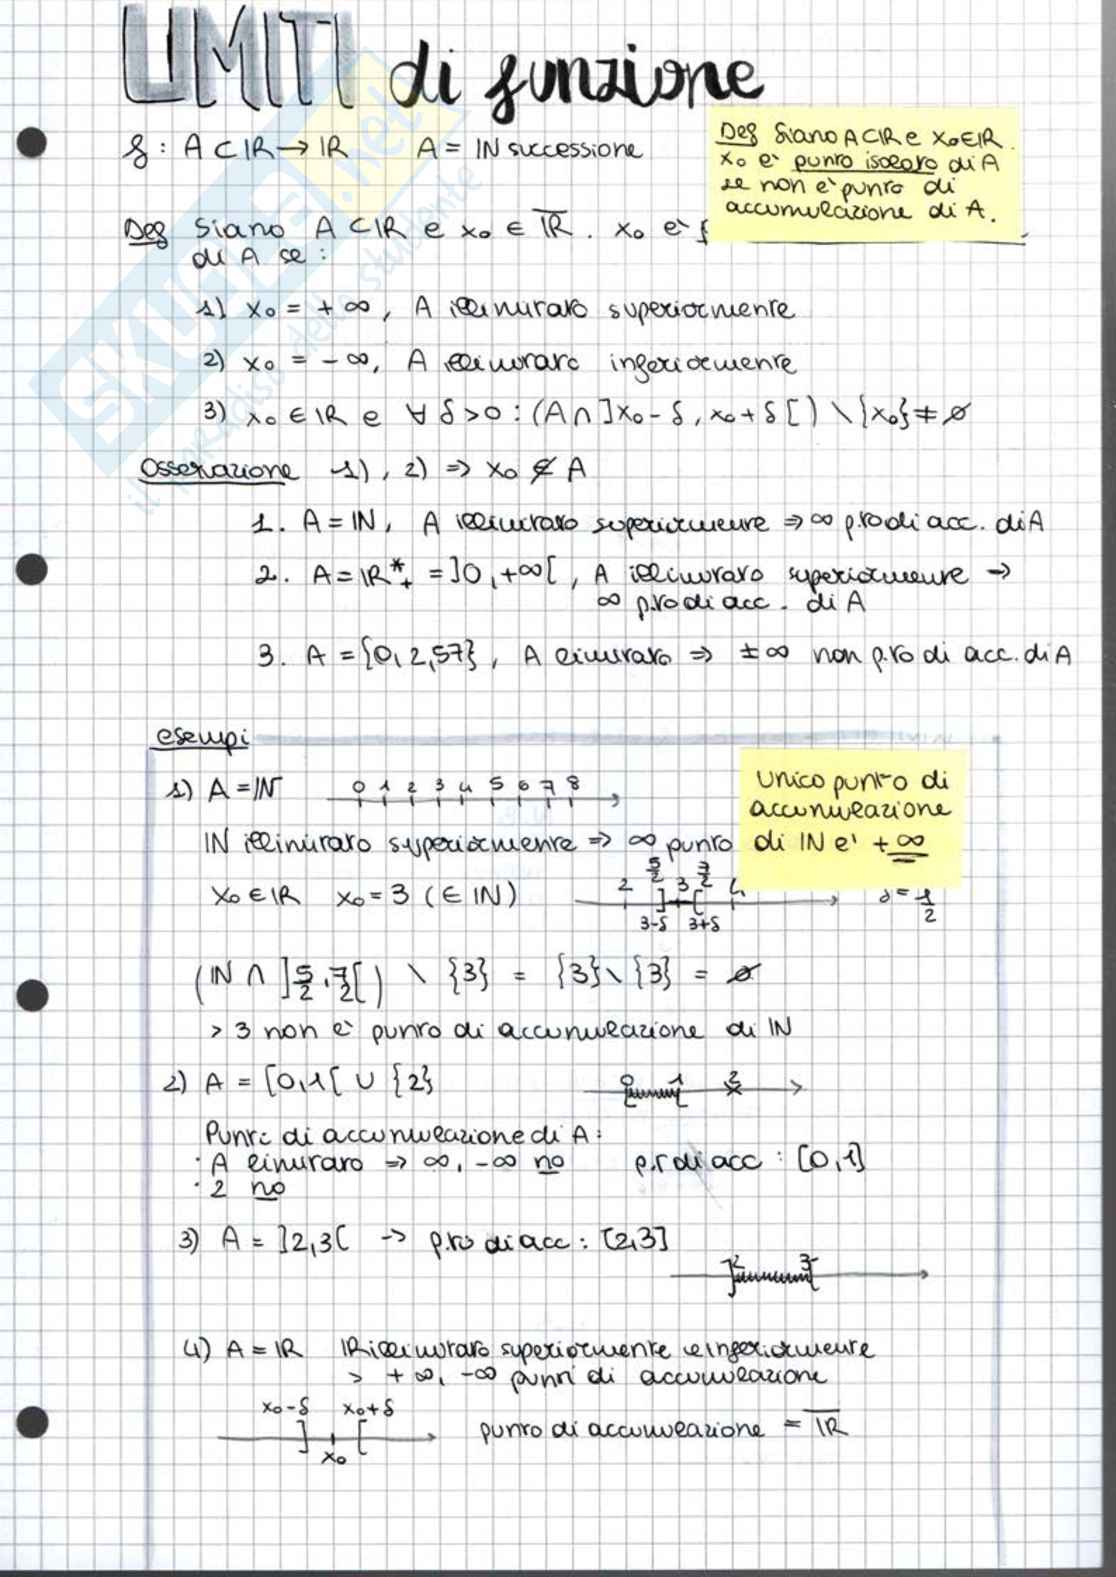 LIMITI di funzione
f : A ⊂ ℝ → ℝ A = ℕ successione
Def Siano A ⊂ ℝ e x₀ ∈ ℝ.
x₀ è punto isolato di A
se non è punto di
accumulazione di A.
Def Siano A ⊂ ℝ e x₀ ∈ ℝ̅. x₀ è
di A se :
1) x₀ = + ∞, A illimitato superiormente
2) x₀ = - ∞, A illimitato inferiormente
3) x₀ ∈ ℝ e ∀ δ > 0 : (A ∩ ]x₀ - δ, x₀ + δ [) \ {x₀} ≠ ∅
Osservazione 1), 2) ⇒ x₀ ∉ A
1. A = ℕ, A illimitato superiormente ⇒ ∞ p.to di acc. di A
2. A = ℝ*₊ = ]0, +∞[, A illimitato superiormente →
∞ p.to di acc. di A
3. A = {0, 2, 57}, A limitato ⇒ ± ∞ non p.to di acc. di A
esempi
1) A = ℕ 0 1 2 3 4 5 6 7 8
unico punto di
accumulazione
di ℕ è +∞
ℕ illimitato superiormente ⇒ ∞ punto
x₀ ∈ ℝ x₀ = 3 (∈ ℕ) 2 5/2 3 7/2 4 δ = 1/2
3-δ 3+δ
(ℕ ∩ ]5/2, 7/2[) \ {3} = {3} \ {3} = ∅
> 3 non è punto di accumulazione di ℕ
2) A = [0,1[ ∪ {2} 0 1 2
Punti di accumulazione di A :
· A limitato ⇒ ∞, -∞ no p.t di acc : [0,1]
· 2 no
3) A = ]2,3[ -> p.to di acc : [2,3]
2 3
4) A = ℝ ℝ illimitato superiormente e inferiormente
> + ∞, -∞ punti di accumulazione
x₀-δ x₀+δ
punto di accumulazione = ℝ̅
x₀
SKUOLA.net
il paradiso dello studente